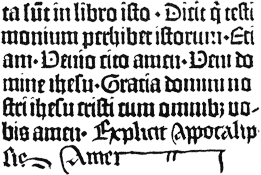 ta sūt in libro isto · Dicit q̄ testi
monium perhibet istorum · Eti
am · Venio cito amen · Veni do
mine ihesu · Gratia domini no
stri ihesu cristi cum omnib; vo-
bis amen · Explicit Appocalip
sis Amen